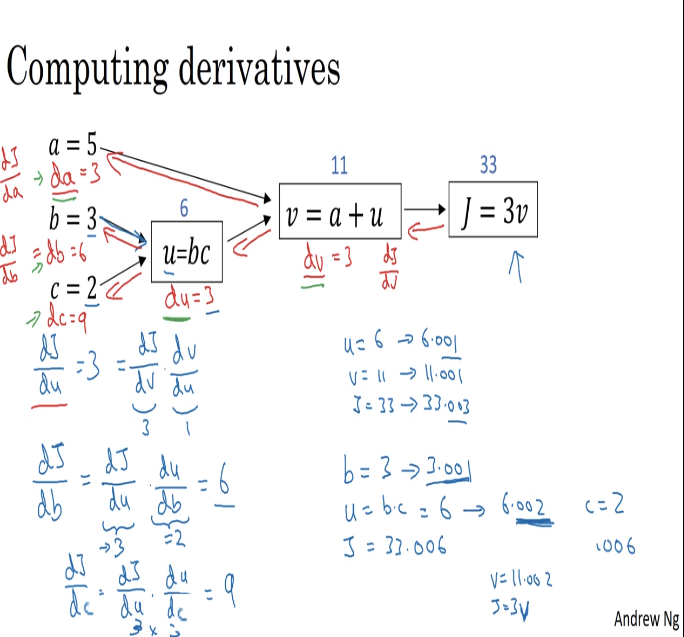 Computing derivatives
a = 5
dJ/da → da = 3
11
33
b = 3
6
v = a + u
J = 3v
dJ/db = db = 6
u=bc
dv = 3 dJ/dv
c = 2
du = 3
⇒ dc = 9
dJ/du = 3 = dJ/dv · dv/du
3 1
u = 6 → 6.001
v = 11 → 11.001
J = 33 → 33.003
dJ/db = dJ/du · du/db = 6
→3 =2
b = 3 → 3.001
u = b·c = 6 → 6.002 c = 2
J = 33.006 .006
dJ/dc = dJ/du · du/dc = 9
3 × 3
v = 11.002
J = 3v
Andrew Ng